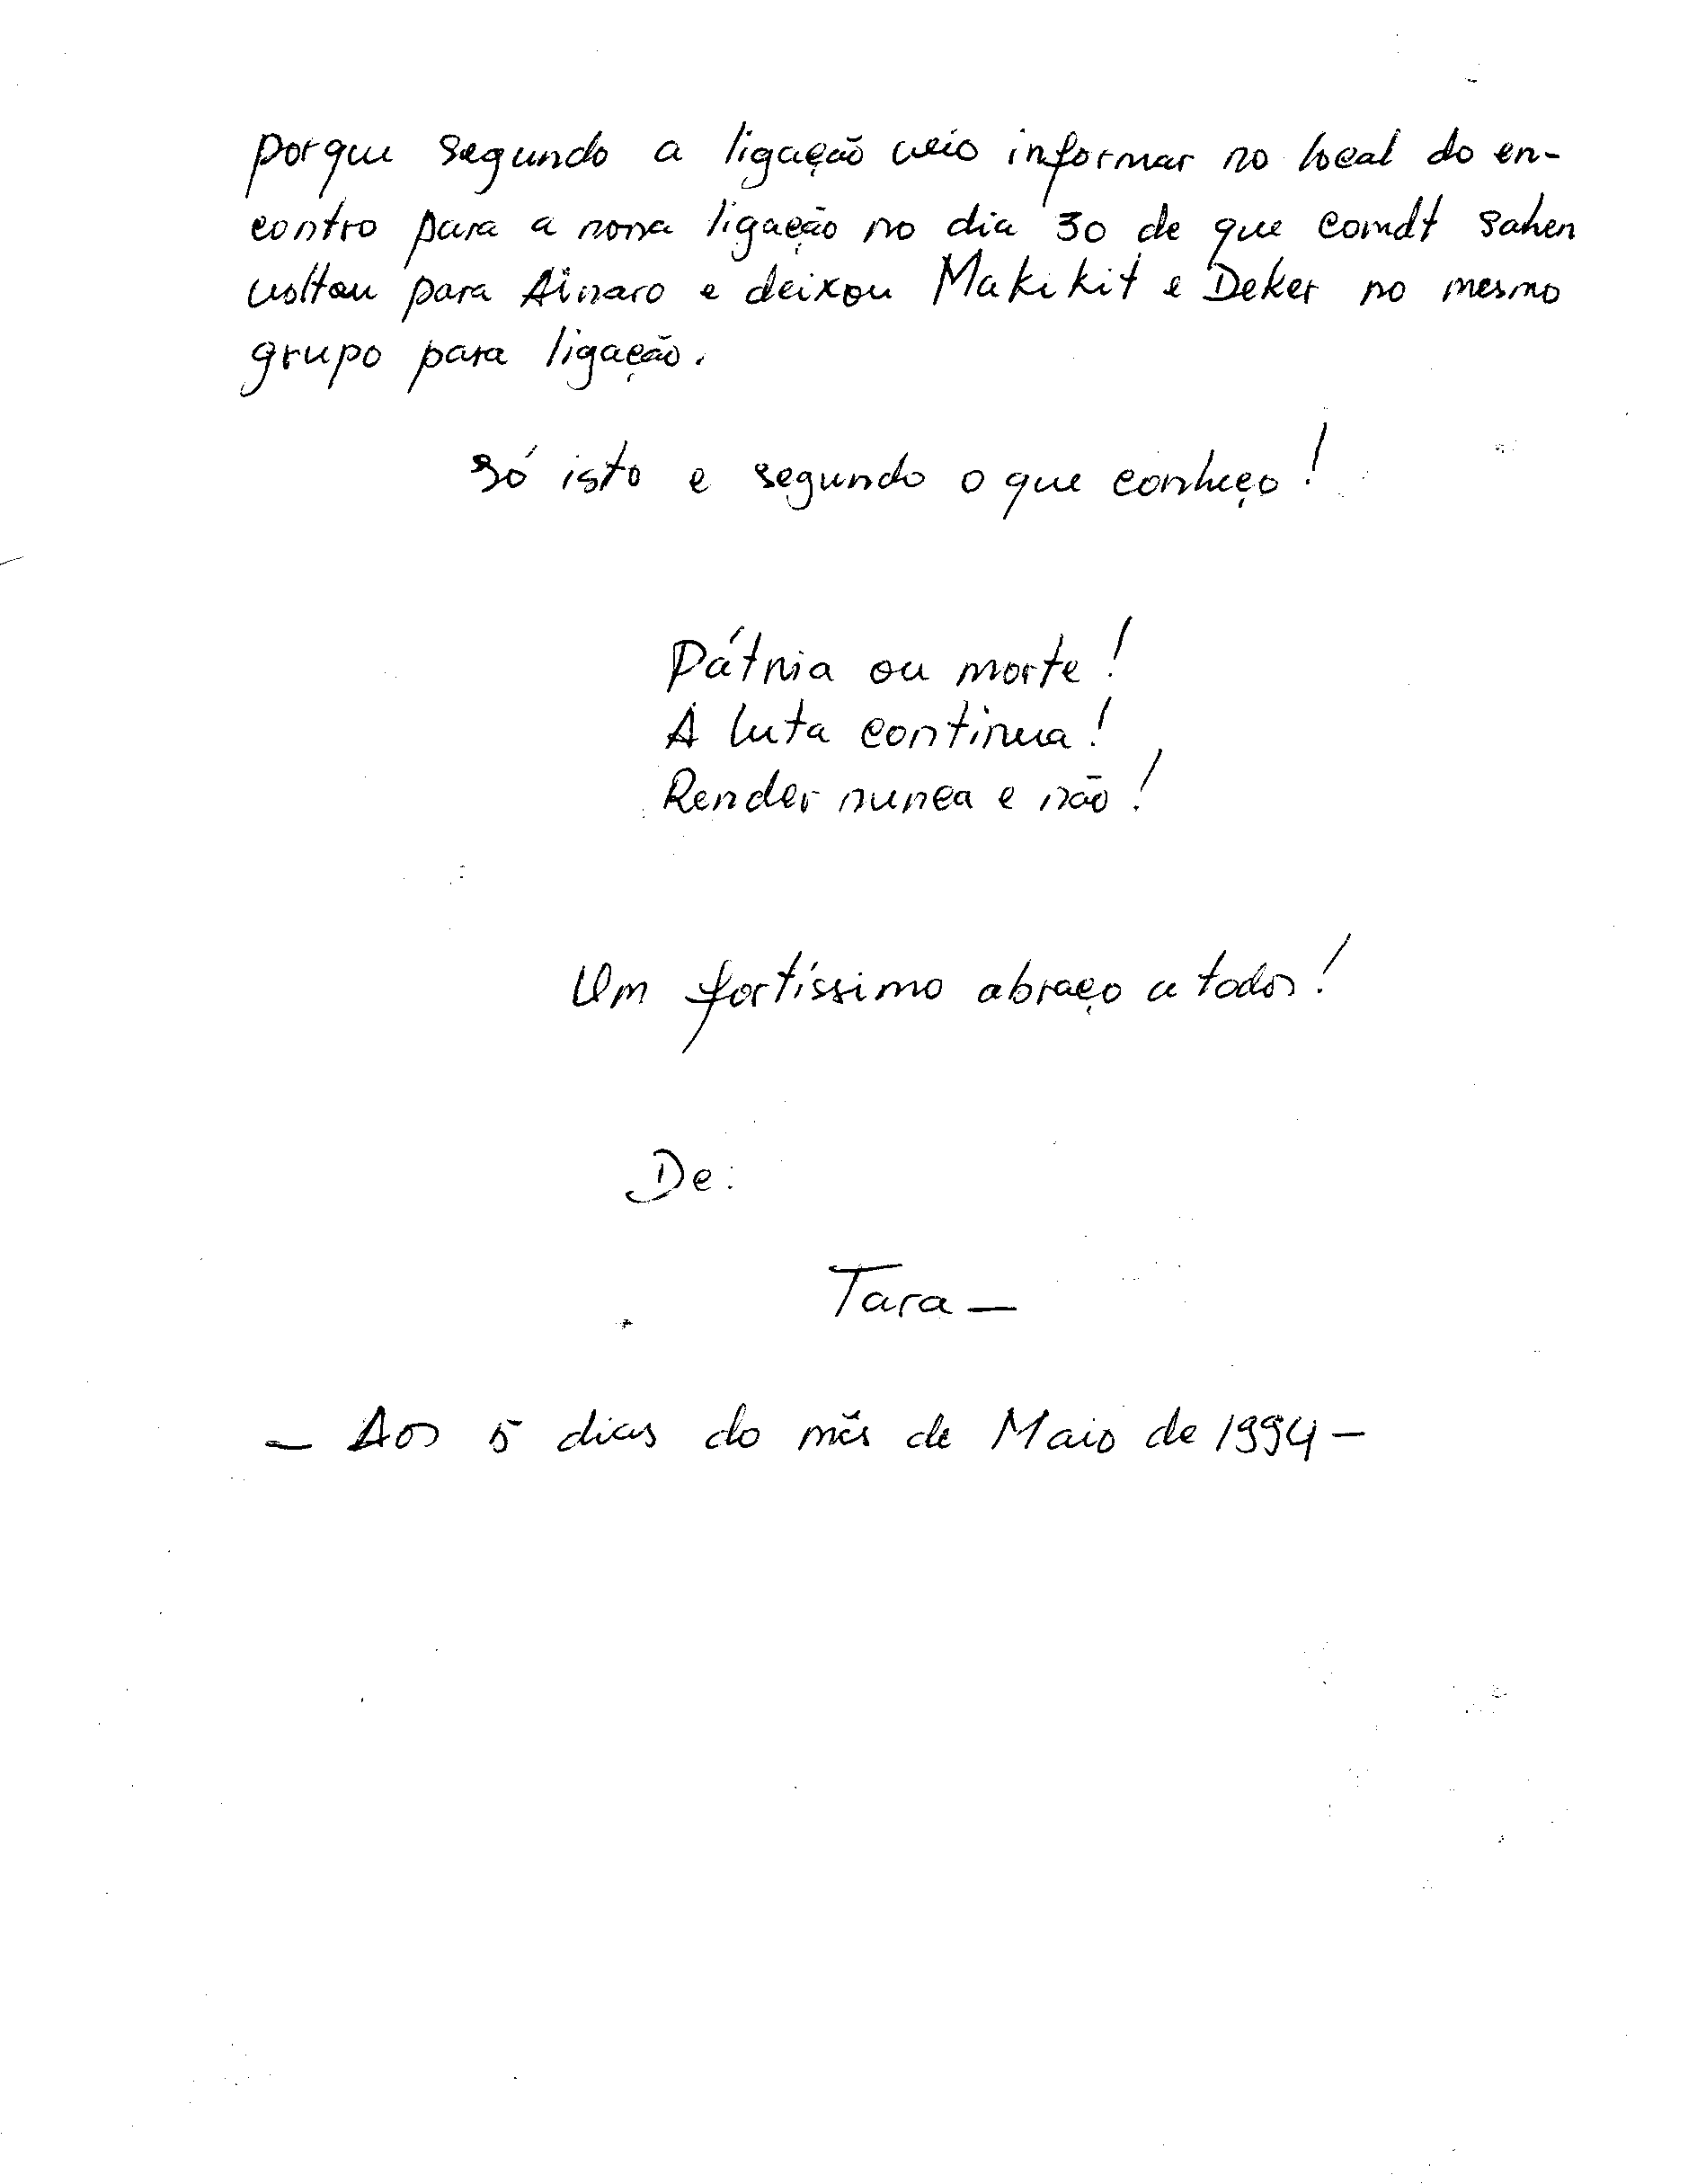 porque segundo a ligação veio informar no local do en-
contro para a nossa ligação no dia 30 de que comdt Sahen
voltou para Ainaro e deixou Makikit e Deker no mesmo
grupo para ligação.
Só isto e segundo o que conheço!
Pátria ou morte!
A luta continua!
Render nunca e não!
Um fortíssimo abraço a todos!
De:
Tara –
– Aos 5 dias do mês de Maio de 1994 –